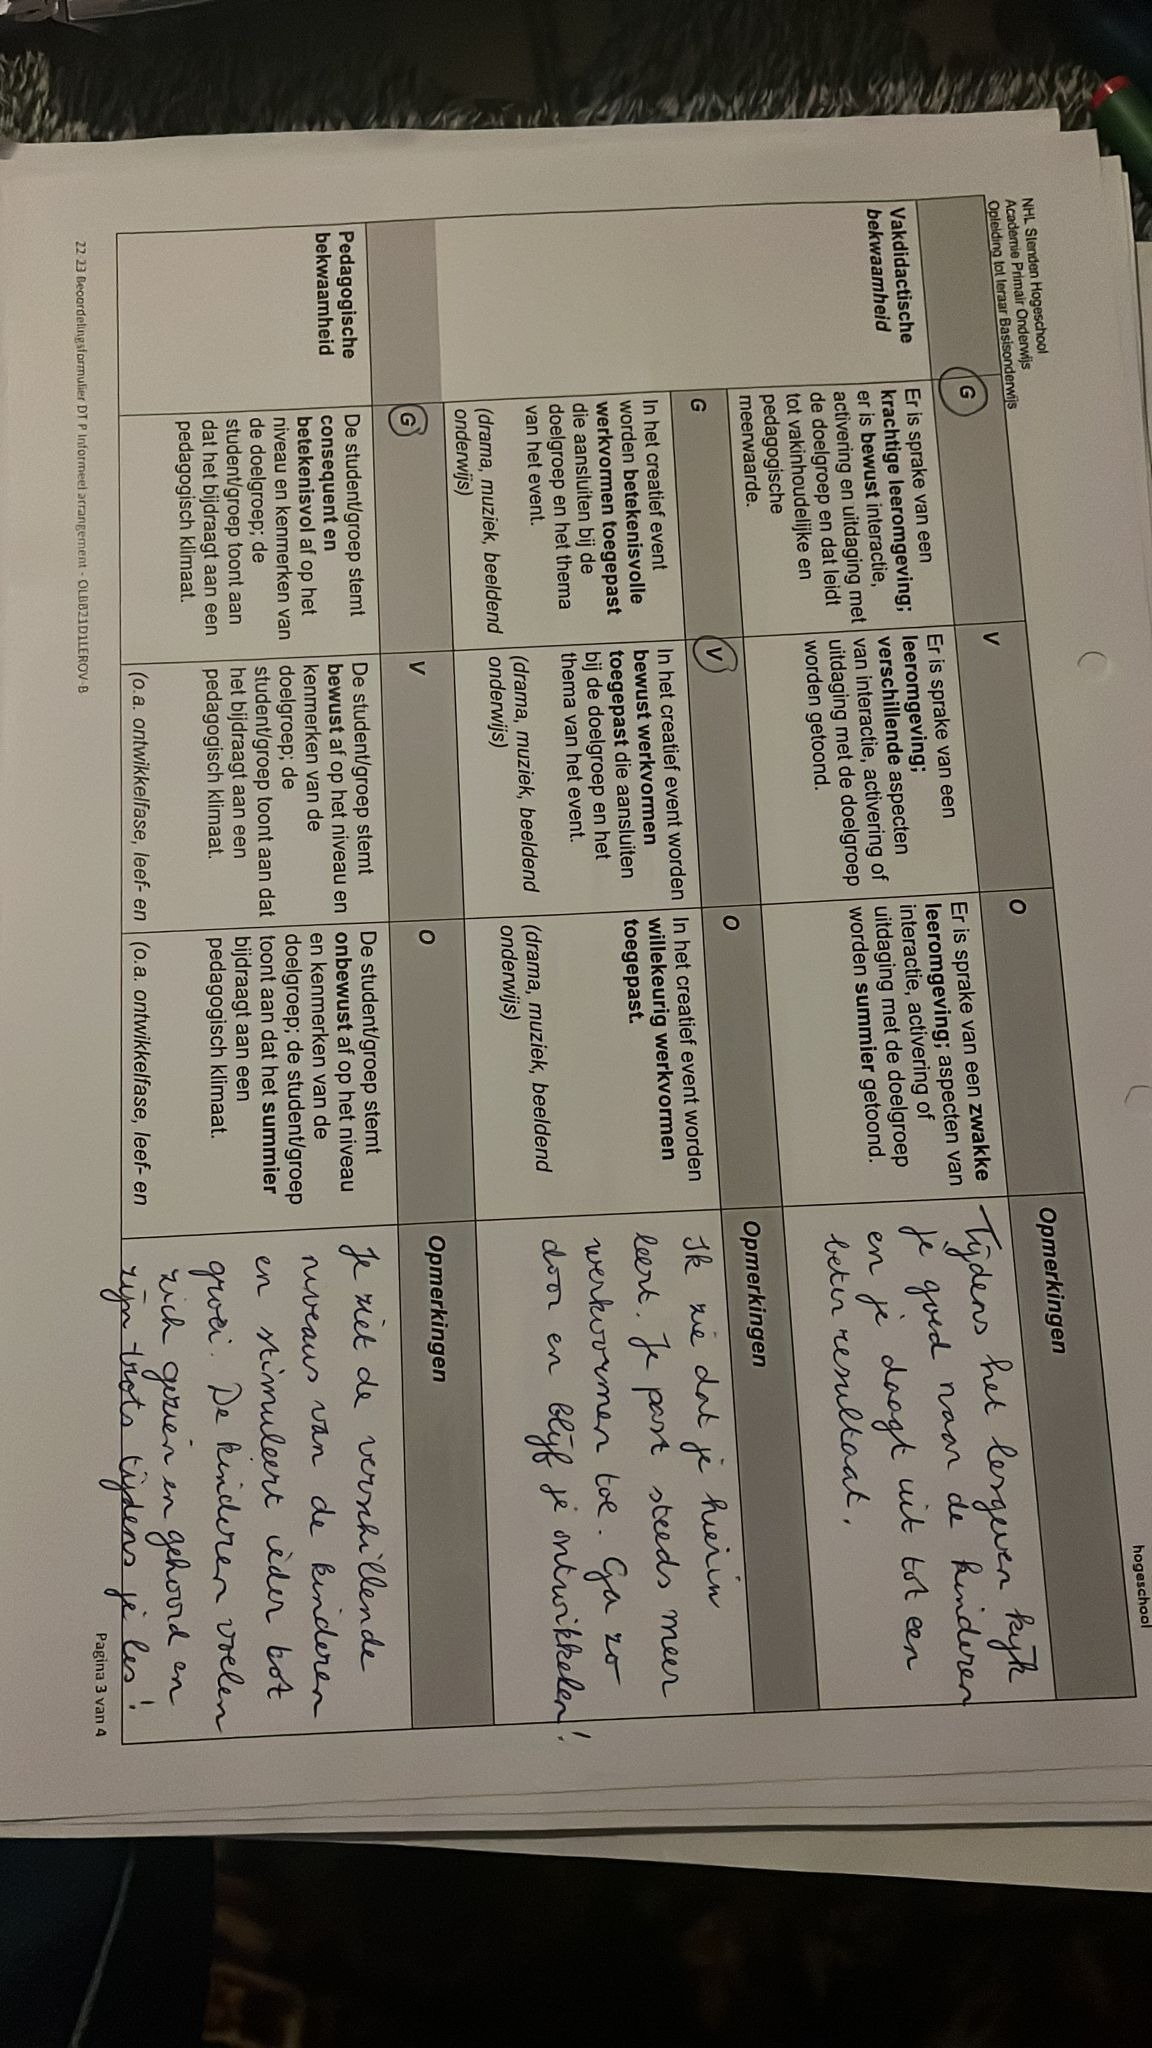 NHL Stenden Hogeschool
Academie Primair Onderwijs
Opleiding tot leraar Basisonderwijs
hogeschool
G
V
O
Opmerkingen
Vakdidactische
bekwaamheid
Er is sprake van een
krachtige leeromgeving;
er is bewust interactie,
activering en uitdaging met
de doelgroep en dat leidt
tot vakinhoudelijke en
pedagogische
meerwaarde.
Er is sprake van een
leeromgeving;
verschillende aspecten
van interactie, activering of
uitdaging met de doelgroep
worden getoond.
Er is sprake van een zwakke
leeromgeving; aspecten van
interactie, activering of
uitdaging met de doelgroep
worden summier getoond.
Tijdens het lesgeven kijk
je goed naar de kinderen
en je daagt uit tot een
beter resultaat.
G
V
O
Opmerkingen
In het creatief event
worden betekenisvolle
werkvormen toegepast
die aansluiten bij de
doelgroep en het thema
van het event.
(drama, muziek, beeldend
onderwijs)
In het creatief event worden
bewust werkvormen
toegepast die aansluiten
bij de doelgroep en het
thema van het event.
(drama, muziek, beeldend
onderwijs)
In het creatief event worden
willekeurig werkvormen
toegepast.
(drama, muziek, beeldend
onderwijs)
Ik zie dat je hierin
leert. Je past steeds meer
werkvormen toe. Ga zo
door en blijf je ontwikkelen!
G
V
O
Opmerkingen
Pedagogische
bekwaamheid
De student/groep stemt
consequent en
betekenisvol af op het
niveau en kenmerken van
de doelgroep; de
student/groep toont aan
dat het bijdraagt aan een
pedagogisch klimaat.
De student/groep stemt
bewust af op het niveau en
kenmerken van de
doelgroep; de
student/groep toont aan dat
het bijdraagt aan een
pedagogisch klimaat.
(o.a. ontwikkelfase, leef- en
De student/groep stemt
onbewust af op het niveau
en kenmerken van de
doelgroep; de student/groep
toont aan dat het summier
bijdraagt aan een
pedagogisch klimaat.
(o.a. ontwikkelfase, leef- en
Je ziet de verschillende
niveaus van de kinderen
en stimuleert ieder tot
groei. De kinderen voelen
zich gezien en gehoord en
zijn trots tijdens je les!
22-23 Beoordelingsformulier DT P Informeel arrangement - OLBB21D1LEROV-B
Pagina 3 van 4